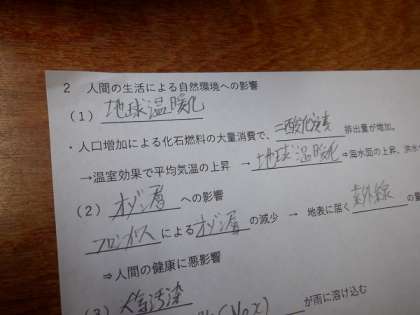 2 人間の生活による自然環境への影響
(1) 地球温暖化
・人口増加による化石燃料の大量消費で、二酸化炭素 排出量が増加。
→温室効果で平均気温の上昇 → 地球温暖化 ⇒海水面の上昇、洪水
(2) オゾン層 への影響
フロンガス による オゾン層 の減少 → 地表に届く 紫外線 の量
⇒人間の健康に悪影響
(3) 大気汚染
(NOx) が雨に溶け込む